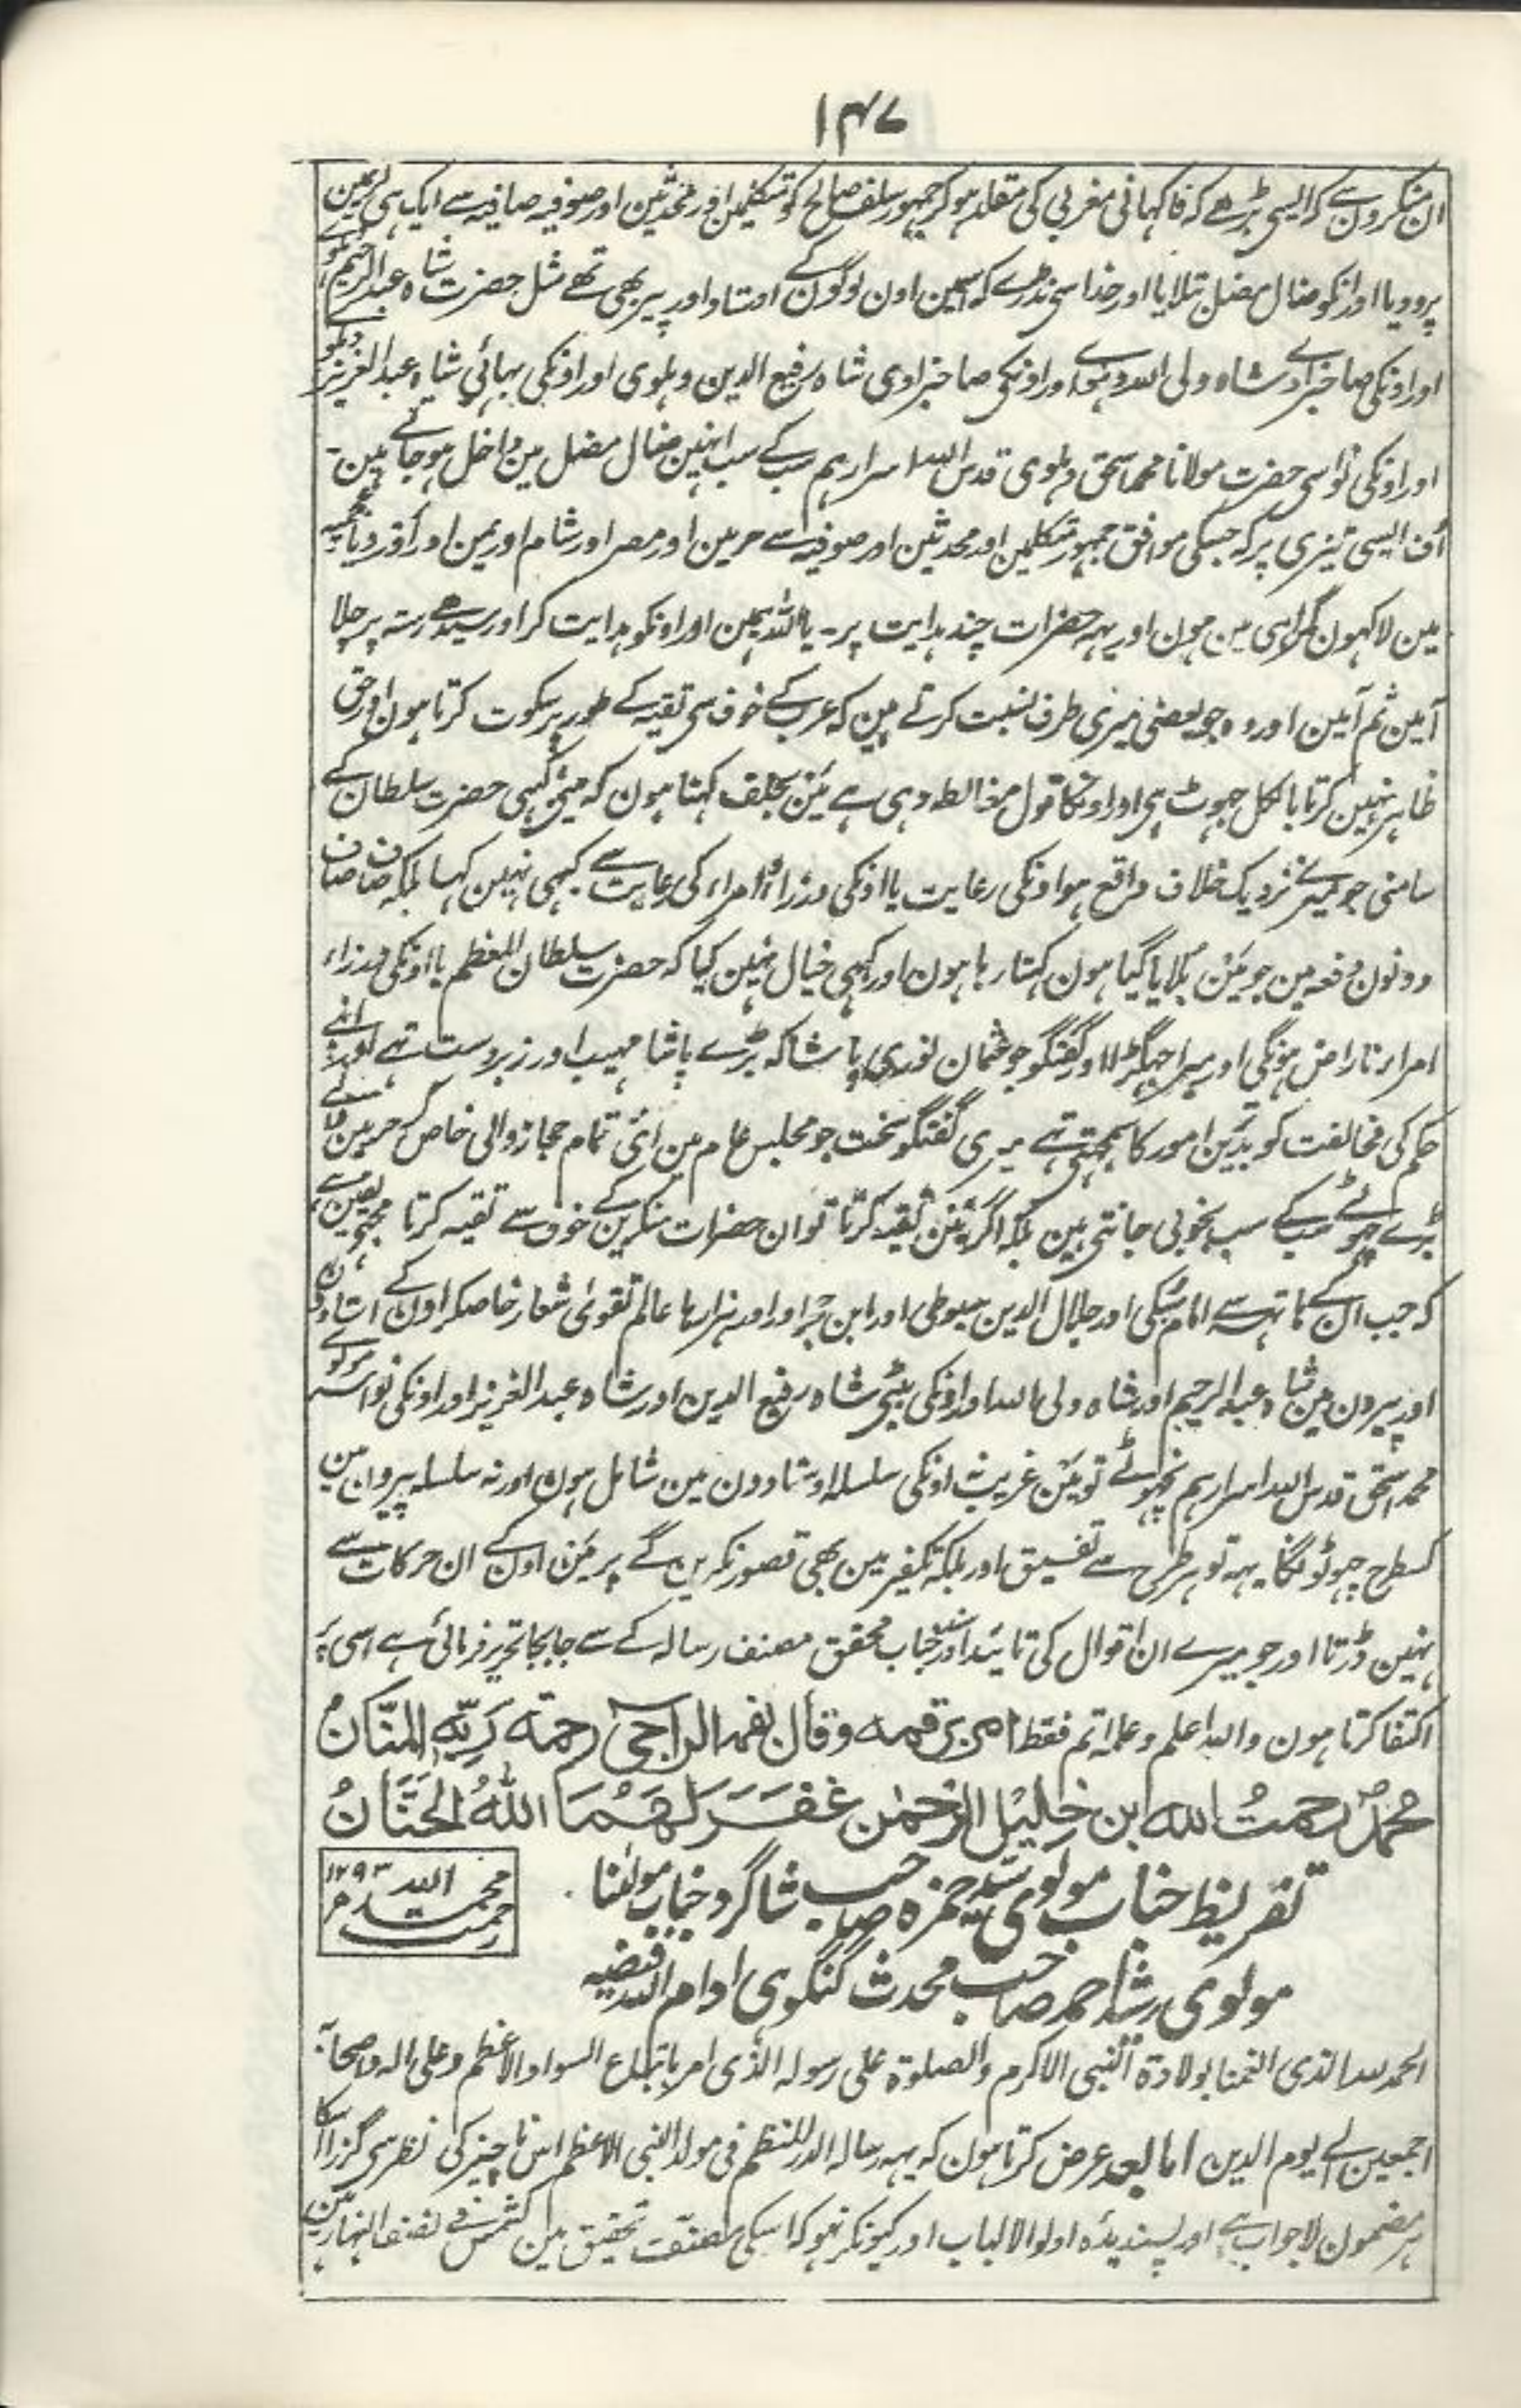 ۱۴۷
ان منکرون سے کہ ایسی بڑھے کہ فاکہانی مغربی کی مقلد ہو کر جمہور سلف صالح کو متکلمین اور محدثین اور صوفیہ صافیہ سے ایک ہی لڑی مین
پرو دیا اور انکو ضال مضل بتلایا اور خدا سی نڈرے کہ اسمین اون لوگون کے اوستاد اور پیر بھی تھے مثل حضرت شاہ عبد الرحیم دہلوی
اور اونکی صاحبزادے شاہ ولی اللہ دہلوی اور اونکی صاحبزادی شاہ رفیع الدین دہلوی اور اونکی بہائی شاہ عبد العزیز دہلوی
اور اونکی نواسی حضرت مولانا محمد اسحق دہلوی قدس اللہ اسرارہم سب کے سب انہین ضال مضل مین داخل ہو جاتے ہین۔
اُف ایسی تیزی پر کہ جسکی موافق جمہور متکلمین اور محدثین اور صوفیہ سے حرمین اور مصر اور شام اور یمن اور اَور دیار عجمیہ
مین لاکہون گمراہی مین ہون اور یہہ حضرات چند ہدایت پر۔ یا اللہ ہمین اور اونکو ہدایت کر اور سیدھے رستہ پر چلا
آمین ثم آمین اور وہ جو بعضی میری طرف نسبت کرتے ہین کہ عرب کے خوف سی تقیہ کے طور پر سکوت کرتا ہون اور حق
ظاہر نہین کرتا بالکل جہوٹ ہی اور اونکا قول مغالطہ دہی ہے مین بحلف کہتا ہون کہ مینی کبہی حضرت سلطان کے
سامنی جو میرے نزدیک خلاف واقع ہو اونکی رعایت یا اونکی وزراء اور امراء کی رعایت سے کبہی نہین کہا بلکہ صاف صاف
دونون دفعہ مین جو مین بلایا گیا ہون کہتا رہا ہون اور کبہی خیال نہین کیا کہ حضرت سلطان المعظم یا اونکی وزراء
امراء ناراض ہونگی اور میرا جہگڑا اور گفتگو جو عثمان نوری پاشا کہ بڑے پاشا مہیب اور زبردست تہے اور اپنے
حکم کی مخالفت کو بدترین امور کا سمجہتی تہے میری گفتگو سخت جو مجلس عام مین آئی تمام حجاز والی خاص کر حرمین کے
بڑے چہوٹے سب کے سب بخوبی جانتی ہین بلکہ اگر مین تقیہ کرتا تو ان حضرات منکرین کے خوف سے تقیہ کرتا مجہی یقین ہے
کہ جب ان کے ہاتہہ سے امام سبکی اور جلال الدین سیوطی اور ابن حجر اور اور ہزارہا عالم تقویٰ شعار خاصکر اون کے استادون
اور پیرون مین شاہ عبد الرحیم اور شاہ ولی اللہ اور اونکی بیٹی شاہ رفیع الدین اور شاہ عبد العزیز اور اونکی نواسے مولوی
محمد اسحق قدس اللہ اسرارہم نچہوٹے تو مین غریب نہ اونکی سلسلہ اوستادون مین شامل ہون اور نہ سلسلہ پیرون مین
کسطرح چہوٹونگا یہہ تو ہر طرح سے تفسیق اور بلکہ تکفیر مین بھی قصور نکرین گے پر مین اون کے ان حرکات سے
نہین ڈرتا اور جو میرے ان اقوال کی تائید اور سند جناب محقق مصنف رسالہ کے سے جا بجا تحریر فرمائی ہے اسی پر
اکتفا کرتا ہون واللہ اعلم وعلمہ اتم فقط امر برقمہ وقال بفمہ الراجی رحمۃ ربہ المنان
محمد رحمت اللہ ابن خلیل الرحمٰن غفر لہما اللہ الحنان
محمد رحمت اللہ ۱۲۹۳
تقریظ جناب مولوی سید حمزہ صاحب شاگرد جناب مولٰنا
مولوی رشید احمد صاحب محدث گنگوہی ادام اللہ فیضہ
الحمد للہ الذی انعمنا بولادۃ النبی الاکرم والصلوۃ علی رسولہ الذی امر باتباع السواد الاعظم وعلی الہ واصحابہ
اجمعین الے یوم الدین اما بعد عرض کرتا ہون کہ یہہ رسالہ الدر المنظم فی مولد النبی الاعظم اس ناچیز کی نظر سی گزرا اسکا
ہر مضمون لاجواب ہے اور پسندیدہ اولو الالباب اور کیونکر نہو کہ اسکی مصنف تحقیق مین کشمس فے نصف النہار ہین